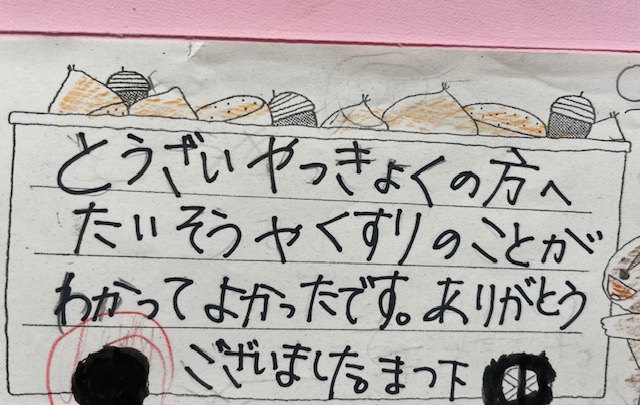 とうざいやっきょくの方へ
たいそうやくすりのことが
わかってよかったです。ありがとう
ございました。まつ下